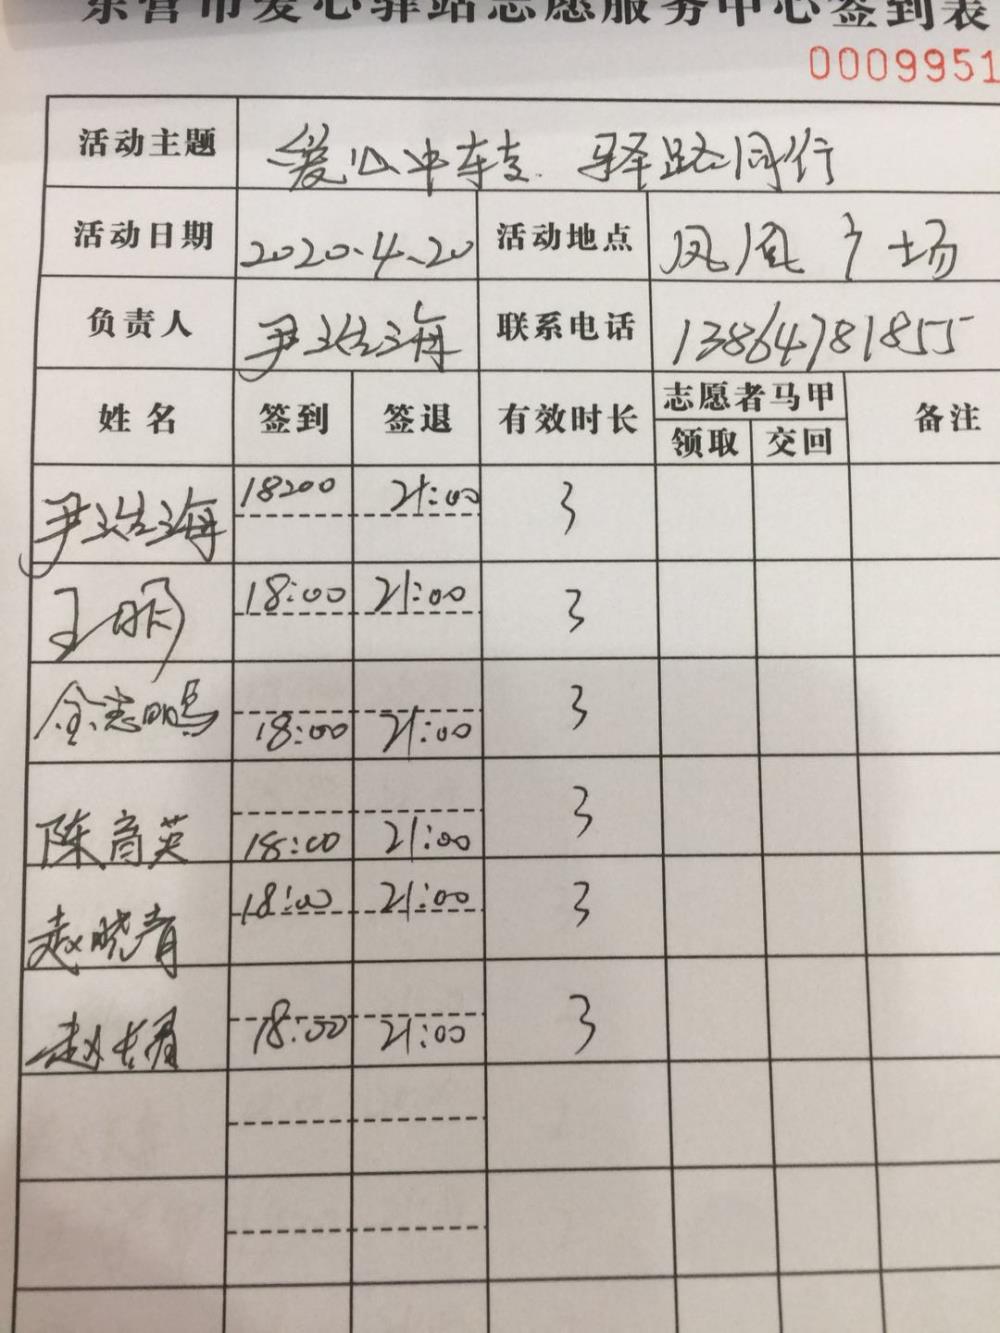 东营市爱心驿站志愿服务中心签到表
0009951
活动主题 爱心中转 驿路同行
活动日期 2020.4.20 活动地点 凤凰广场
负责人 尹洪海 联系电话 13864781855
姓名 签到 签退 有效时长 志愿者马甲 备注
领取 交回
尹洪海 18:00 21:00 3
王明 18:00 21:00 3
金志鸣 18:00 21:00 3
陈育英 18:00 21:00 3
赵晓青 18:00 21:00 3
赵长 18:00 21:00 3